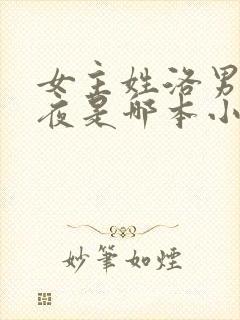 女主姓洛男
夜是哪本小
妙筆如煙